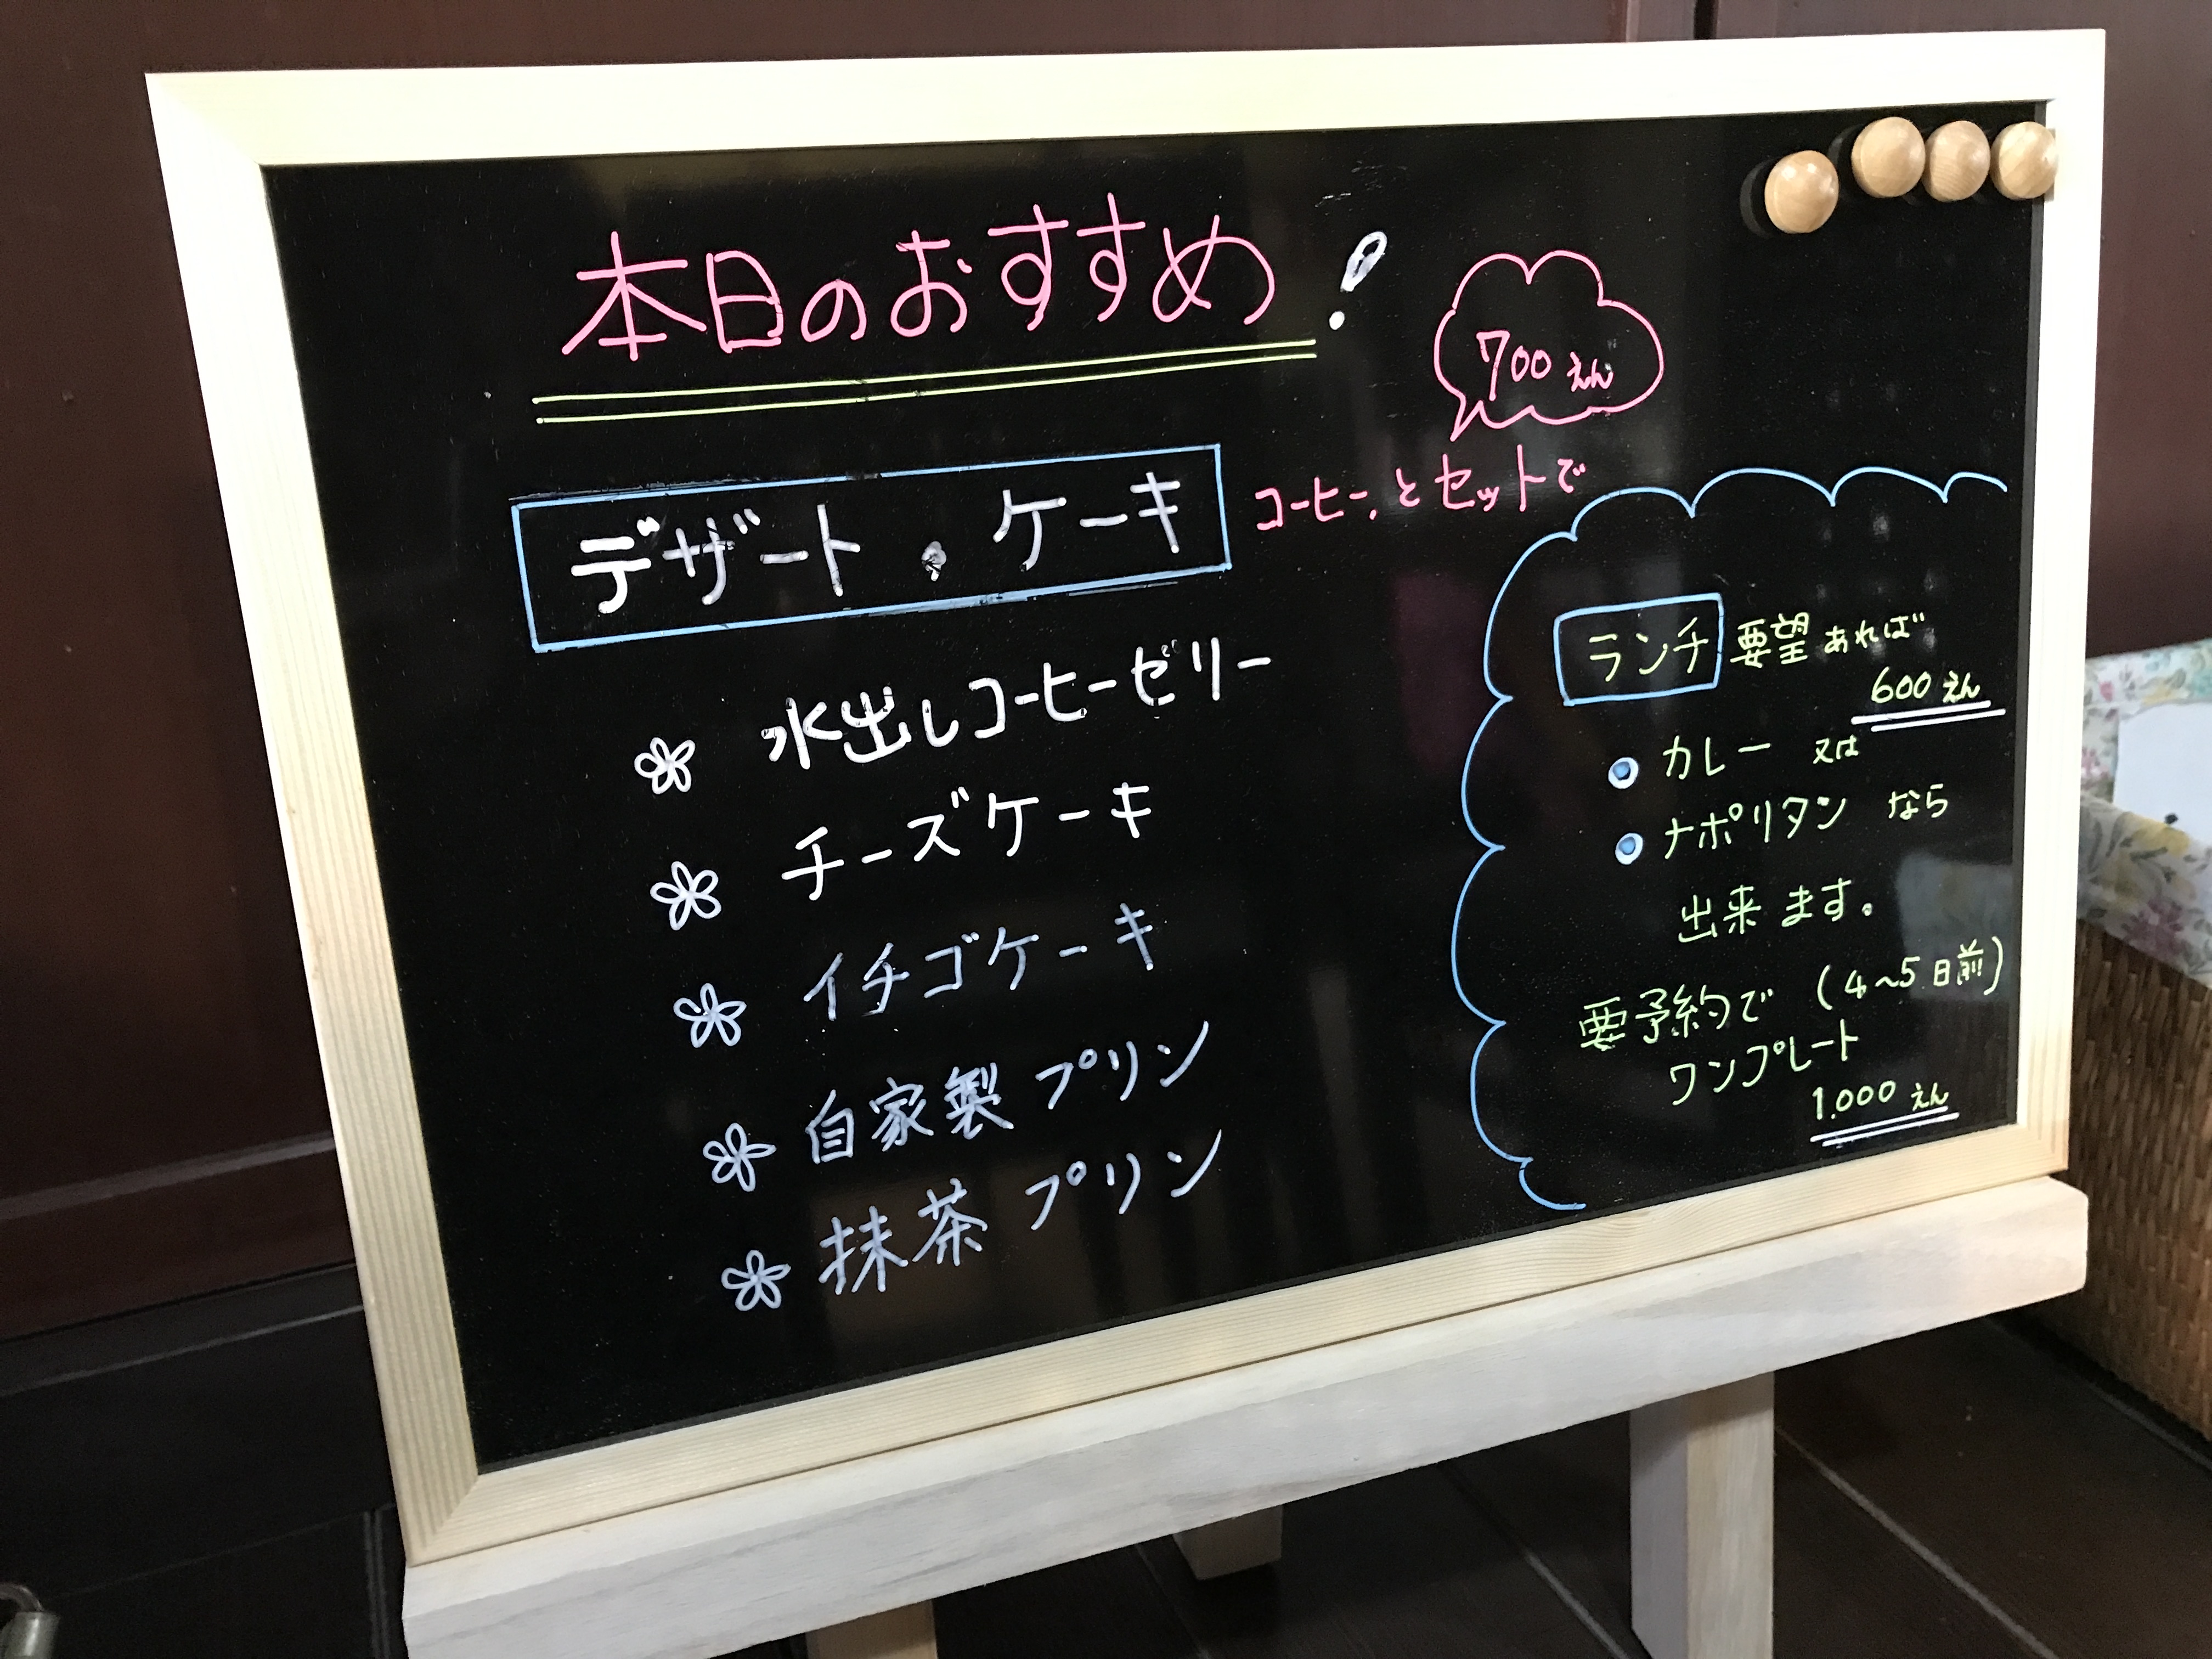 本日のおすすめ!
700えん
デザート・ケーキ コーヒーとセットで
水出しコーヒーゼリー
チーズケーキ
イチゴケーキ
自家製プリン
抹茶プリン
ランチ 要望あれば
600えん
カレー 又は
ナポリタン なら
出来ます。
要予約で (4~5日前)
ワンプレート
1.000えん